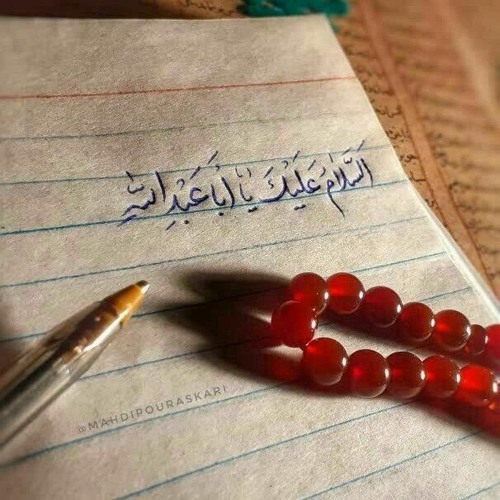 اَلسَّلامُ عَلَیْكَ یٰا اَبا عَبْدِ اللهِ
@MAHDIPOURASKARI